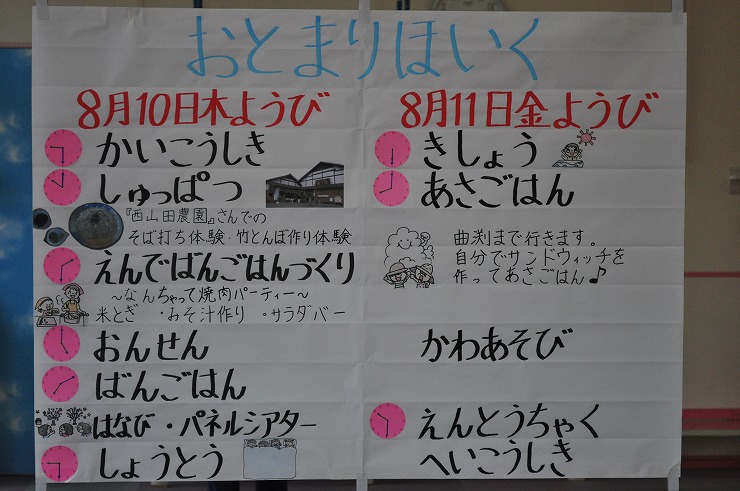 おとまりほいく
8月10日木ようび
かいこうしき
しゅっぱつ
『西山田農園』さんでの
そば打ち体験・竹とんぼ作り体験
えんでばんごはんづくり
～なんちゃって焼肉パーティー～
米とぎ ・みそ汁作り ・サラダバー
おんせん
ばんごはん
はなび・パネルシアター
しょうとう
8月11日金ようび
きしょう
あさごはん
曲渕まで行きます。
自分でサンドウィッチを
作ってあさごはん♪
かわあそび
えんとうちゃく
へいこうしき